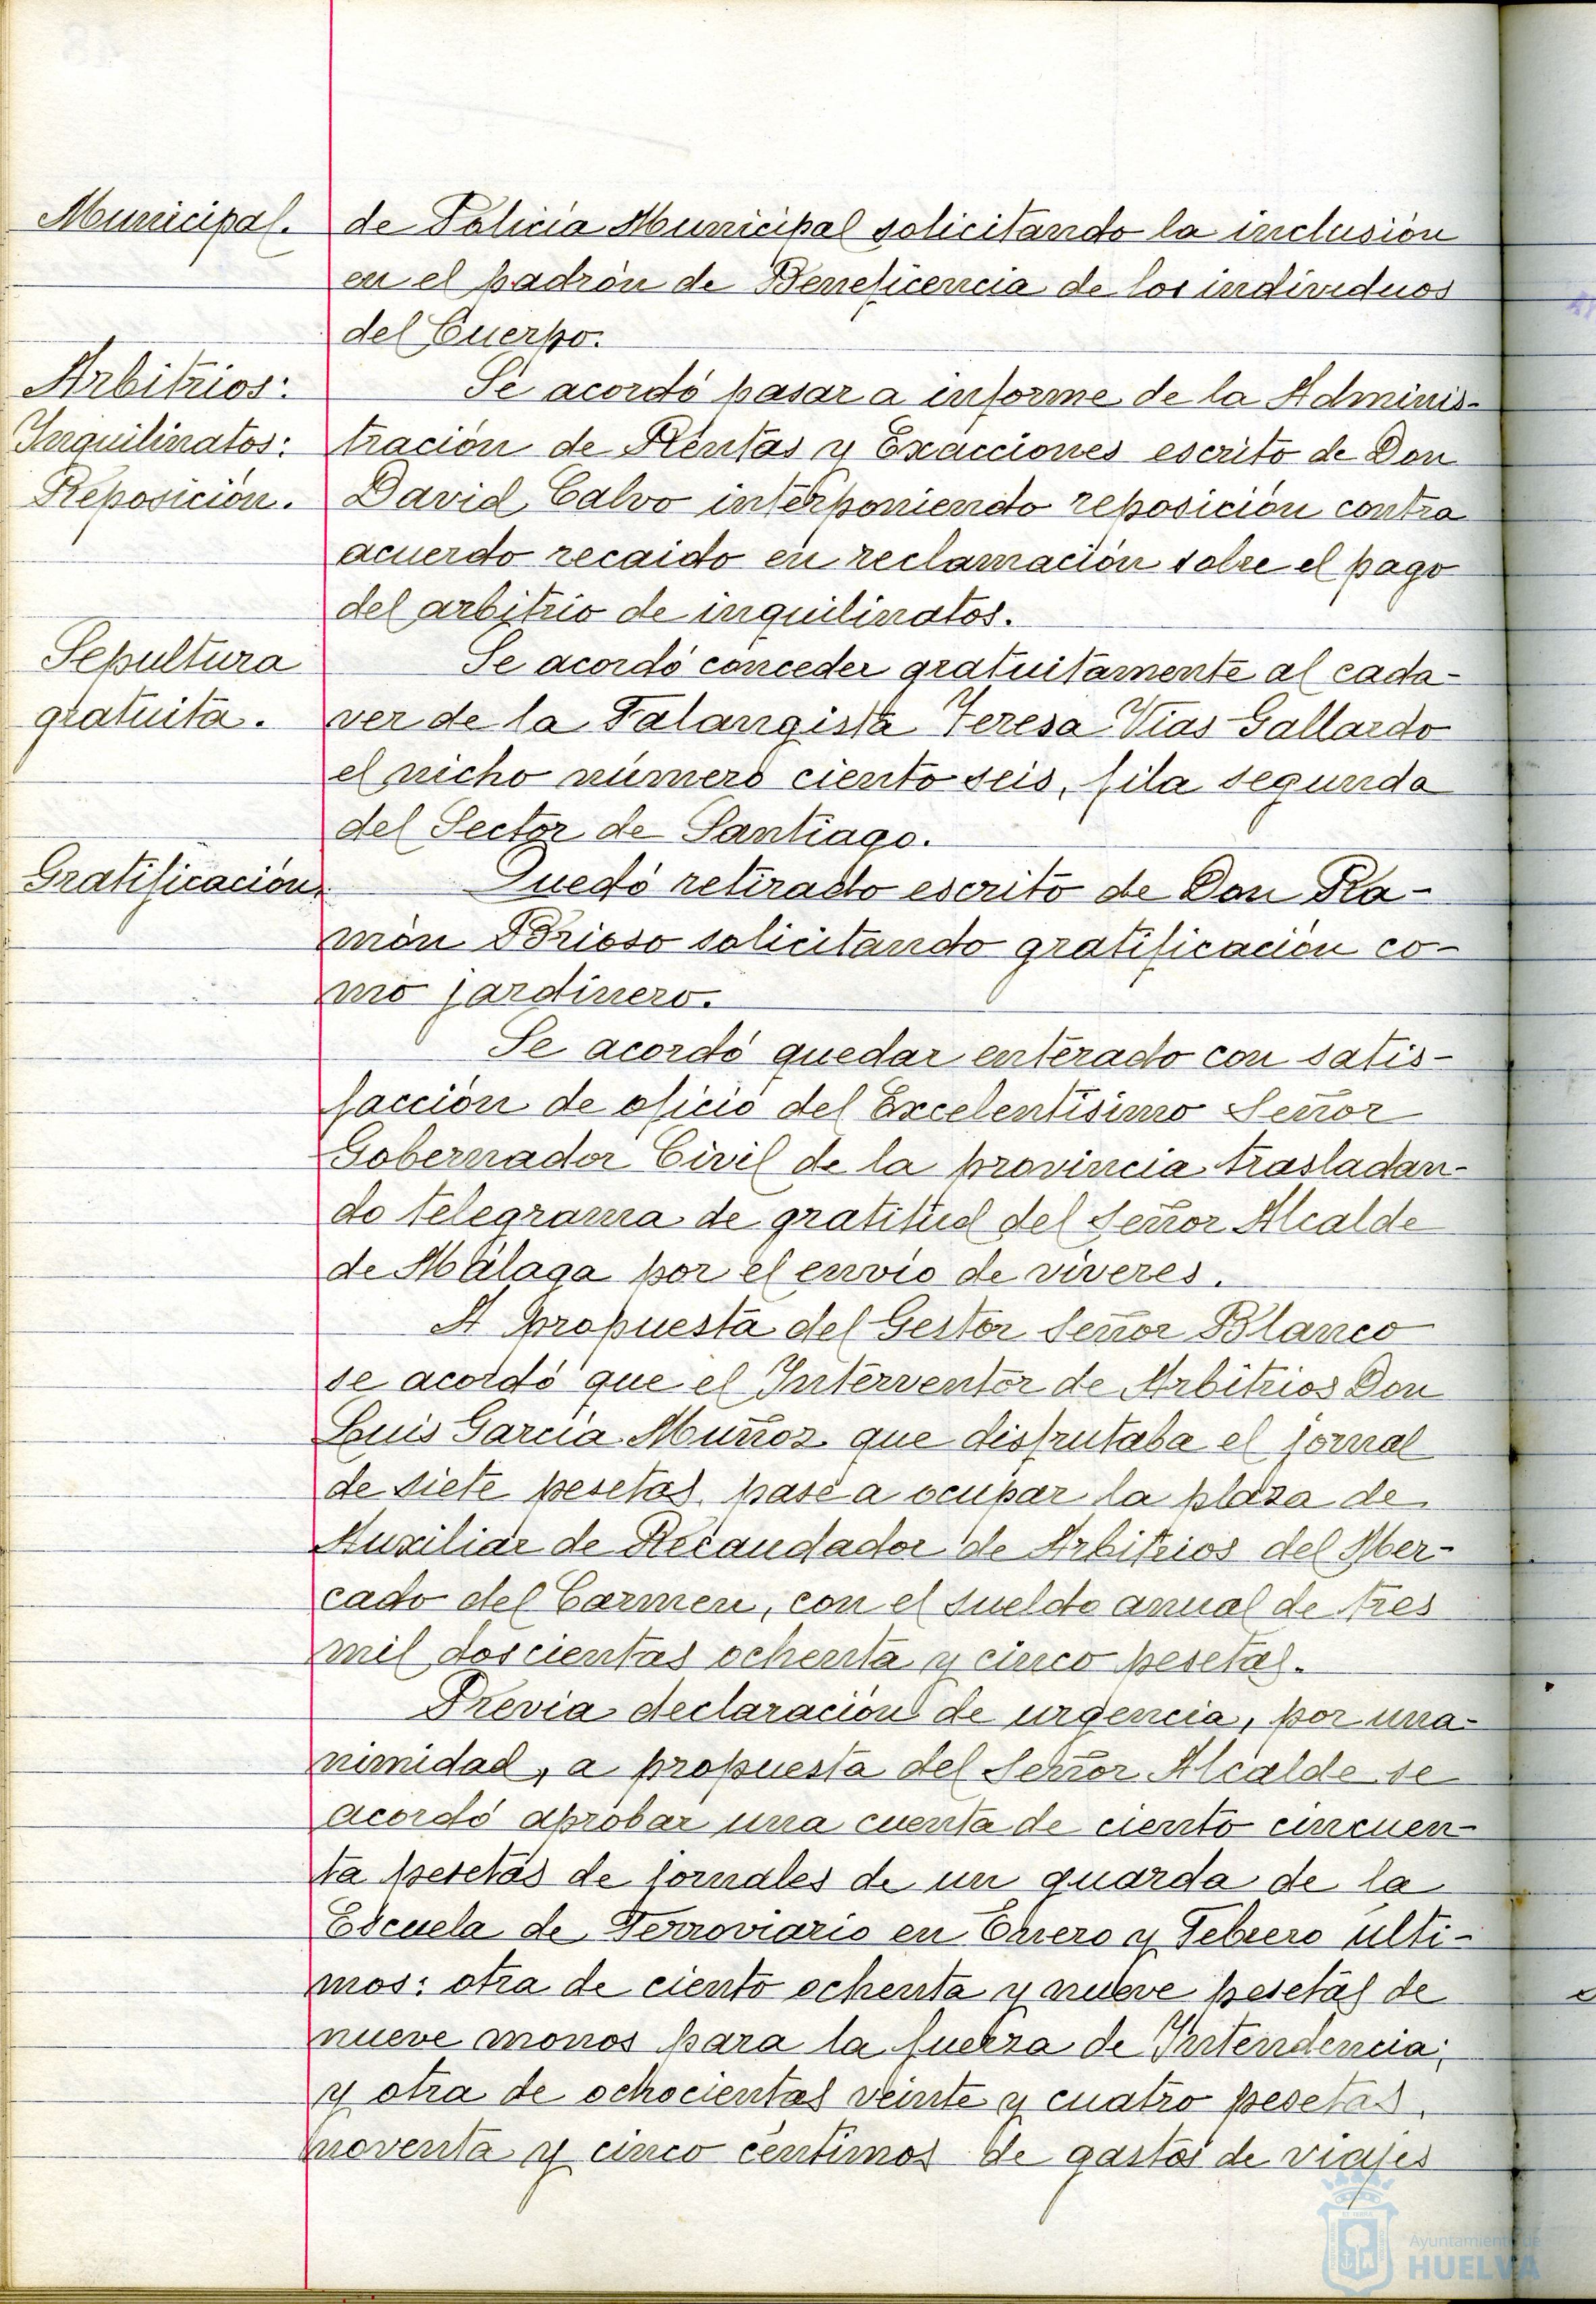 Municipal.
de Policia Municipal solicitando la inclusión
en el padrón de Beneficencia de los individuos
del Cuerpo.
Arbitrios:
Inquilinatos:
Reposición.
Se acordó pasar a informe de la Adminis-
tración de Rentas y Exacciones escrito de Don
David Calvo interponiendo reposición contra
acuerdo recaido en reclamación sobre el pago
del arbitrio de inquilinatos.
Sepultura
gratuita.
Se acordó conceder gratuitamente al cada-
ver de la Falangista Teresa Vias Gallardo
el nicho número ciento seis, fila segunda
del Sector de Santiago.
Gratificación.
Quedó retirado escrito de Don Ra-
món Brioso solicitando gratificación co-
mo jardinero.
Se acordó quedar enterado con satis-
facción de oficio del Excelentísimo Señor
Gobernador Civil de la provincia trasladan-
do telegrama de gratitud del Señor Alcalde
de Málaga por el envío de viveres.
A propuesta del Gestor Señor Blanco
se acordó que el Interventor de Arbitrios Don
Luis García Muñoz que disfrutaba el jornal
de siete pesetas, pase a ocupar la plaza de
Auxiliar de Recaudador de Arbitrios del Mer-
cado del Carmen, con el sueldo anual de tres
mil doscientas ochenta y cinco pesetas.
Previa declaración de urgencia, por una-
nimidad, a propuesta del Señor Alcalde se
acordó aprobar una cuenta de ciento cincuen-
ta pesetas de jornales de un guarda de la
Escuela de Ferroviario en Enero y Febrero últi-
mos: otra de ciento ochenta y nueve pesetas de
nueve monos para la fuerza de Intendencia;
y otra de ochocientas veinte y cuatro pesetas,
noventa y cinco centimos de gastos de viajes
Ayuntamiento de
HUELVA